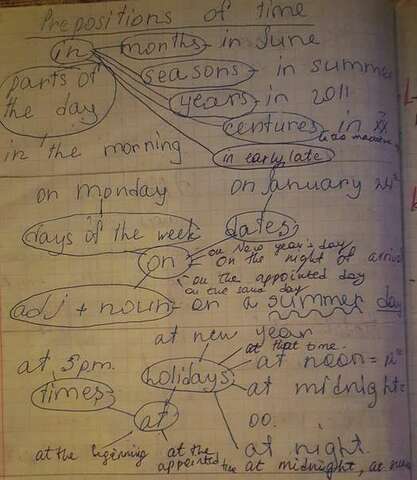 Prepositions of time
in months - in June
seasons - in summer
parts of
the day
years - in 2011
centures in
in the morning
in early, late
on monday on january 24
days of the week dates
on New year's day
on the night of
on
on the appointed day
on the same day
adj + noun - on a summer day
at new year
at that time.
at 5 p.m. holidays at noon =
times at midnight =
00.
at
at the beginning at the
appointed at night.
at midnight, at